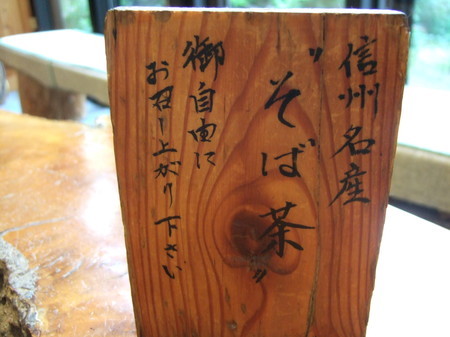 信州名産
"そば茶"
御自由に
お召し上がり下さい